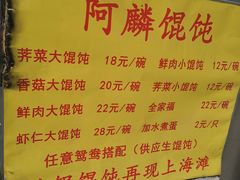 阿麟馄饨
荠菜大馄饨 18元/碗 鲜肉小馄饨 12元/碗
香菇大馄饨 20元/碗 荠菜小馄饨 12元/碗
鲜肉大馄饨 22元/碗 全家福 22元/碗
虾仁大馄饨 28元/碗 加水煮蛋 2元/只
任意鸳鸯搭配（供应生馄饨）
馄饨再现上海滩